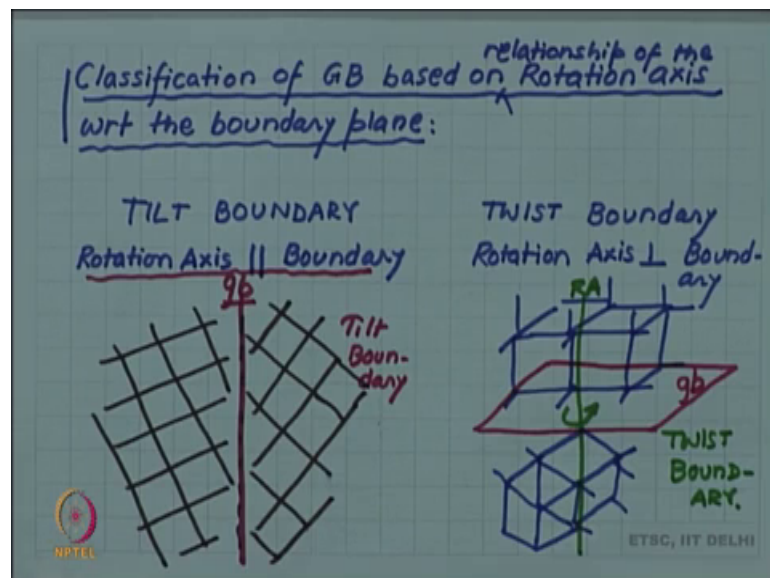 relationship of the
Classification of GB based on Rotation axis
wrt the boundary plane:
TILT BOUNDARY
Rotation Axis || Boundary
gb
Tilt
Boun-
dary
TWIST Boundary
Rotation Axis ⊥ Bound-
ary
RA
gb
TWIST
BOUND-
ARY.
NPTEL
ETSC, IIT DELHI